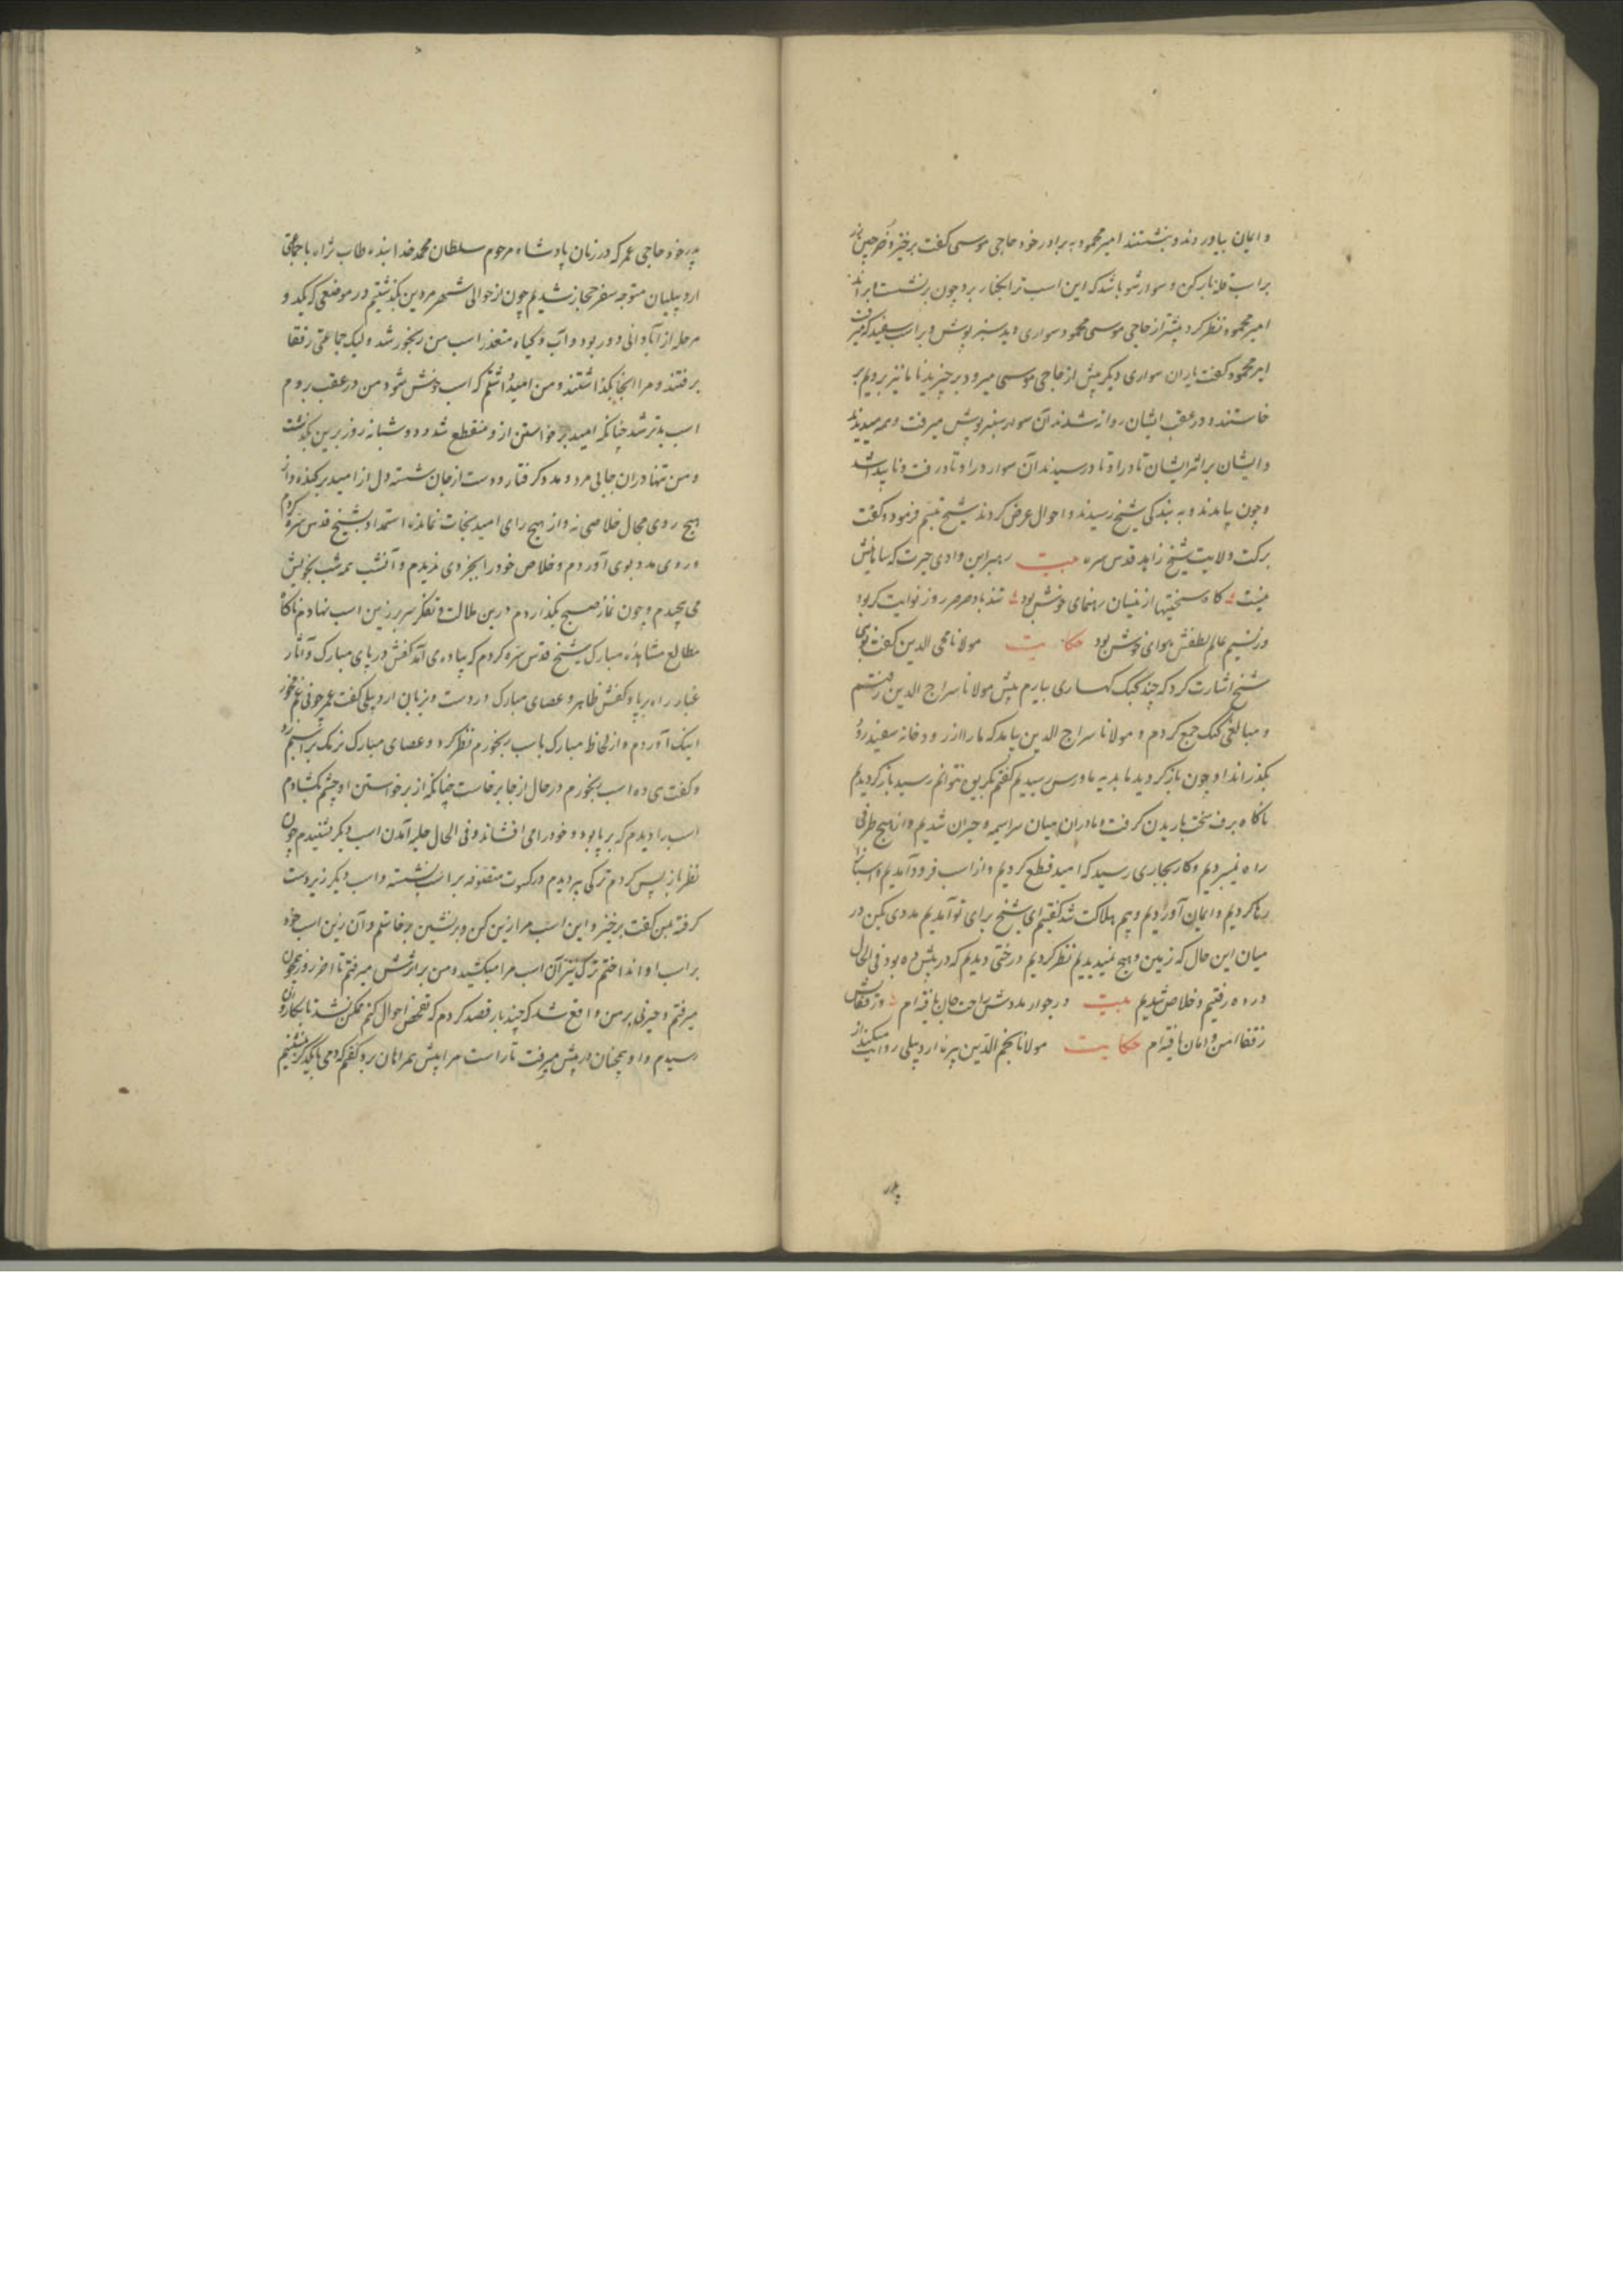 و ایمان بیاوردند و بنشستند امیر محمود به برادر خود حاجی موسی کفت برخیز و خرجین باز
بر اسب قله بار کن و سوار شو باشد که این اسب ترا بکنار برد چون برنشست و براند
امیر محمود نظر کرد پیشتر از حاجی موسی محمود سواری دید سبز پوش و بر اسب سفید که میرفت
امیر محمود کفت یاران سواری دیکر پیش از حاجی موسی میرود برخیزید تا ما نیز برویم بر
خاستند و در عقب ایشان روانه شدند آن سوار سبز پوش میرفت و همه میدیدند
و ایشان بر اثر ایشان تا در اوتاد رسیدند آن سوار در اوتاد رفت و ناپیدا شد
و چون بیامدند و به بندکی شیخ رسیدند و احوال عرض کردند شیخ تبسم فرمود و کفت
برکت ولایت شیخ زاهد قدس سره بیت رهبر این وادی حیرت که بیابانیش
نیست کاه سختیها از نیسان رهنمای خوش بود تند باد صرصر روز نوایت کر بود
در نسیم عالم لطفش هوای خوش بود حکایت مولانا محیی الدین کفت نوبتی
شیخ اشارت کرد که چند کبک کهساری بیارم پیش مولانا سراج الدین رفتم
و مبالغی کبک جمع کردم و مولانا سراج الدین بیامد که ما را از رودخانه سفیدرود
بکذراند او چون باز کردید ما بدیه ماورس رسیدیم کفتم بکریوه نتوانم رسید باز کردیدیم
ناکاه برف سخت باریدن کرفت و ما در ان میان سراسیمه و حیران شدیم و از هیچ طرفی
راه نمیبردیم و کار بجاری رسید که امید قطع کردیم و از اسب فرود آمدیم و اسبان
رها کردیم و ایمان آوردیم و بیم هلاکت شد کفتیم ای شیخ برای تو آمدیم مددی بکن در
میان این حال که زمین و هیچ نمیدیدیم نظر کردیم درختی دیدیم که در پیش ده بود فی الحال
در ده رفتیم و خلاص شدیم بیت در جوار مددش راحت جان یافته ام وز نفحاتش
ز قفا امن و امان یافته ام حکایت مولانا نجم الدین پیرنا اردبیلی روایت میکند از
پدر
پدر خود حاجی عمر که در زمان پادشاه مرحوم سلطان محمد خدابنده طاب ثراه با جماعتی
اردبیلیان متوجه سفر حجاز شدیم چون از حوالی شهر مردین بکذشتیم در موضعی که یک دو
مرحله از آبادانی دور بود و آب و کیاه متعذر اسب من رنجور شد و لیک جماعتی رفقا
برفتند و مرا آنجا بکذاشتند و من امید داشتم که اسب خوش شود من در عقب بروم
اسب بدتر شد چنانکه امید برخواستن از و منقطع شد و دو شبانه روز برین بکذشت
و من تنها در ان جایی مرد و مدد کرفتار و دست از جان شسته دل از امید برکنده و از
هیچ روی مجال خلاصی نه و از هیچ رای امید نجات نمانده استمداد بشیخ قدس سره کردم
و روی مدد بوی آوردم و خلاص خود را بجز وی ندیدم و آنشب همه شب بخویش
می پیچیدم و چون نماز صبح بکذاردم درین ملالت و تفکر سر بر زین اسب نهادم ناکاه
مطالع مشاهده مبارک شیخ قدس سره کردم که پیاده می آمد کفش در پای مبارک و آثار
غبار راه بر پا و کفش ظاهر و عصای مبارک در دست و بزبان اردبیلی کفت عمر چونی غم مخور
اینک آوردم و از لحاظ مبارک باسب رنجورم نظر کرد و عصای مبارک نزمک بر اسبم زد
و کفت ی ده اسب رنجورم در حال از جا برخاست چنانکه از برخواستن او چشم بکشادم
اسب را دیدم که بر پا بود و خود را می افشاند و فی الحال جلبه آمدن اسب دیکر شنیدم چون
نظر باز پس کردم ترکی پیر دیدم در کسوت متصوفه بر اسب نشسته و اسب دیکر زیر دست
کرفته بمن کفت برخیز و این اسب مرا زین کن و برنشین برخاستم و آن زین اسب خود
بر اسب او انداختم ترک نیز آن اسب مرا میکشید و من بر اثرش میرفتم تا آخر روز همچون
میرفتم و حیرتی بر من واقع شد که چند بار قصد کردم که تفحص احوال کنم ممکن نشد تا بکاروان
رسیدم و او همچنان در پیش میرفت تا راست مرا پیش همراهان برد کفتم که دمی با یکدیکر بنشینیم